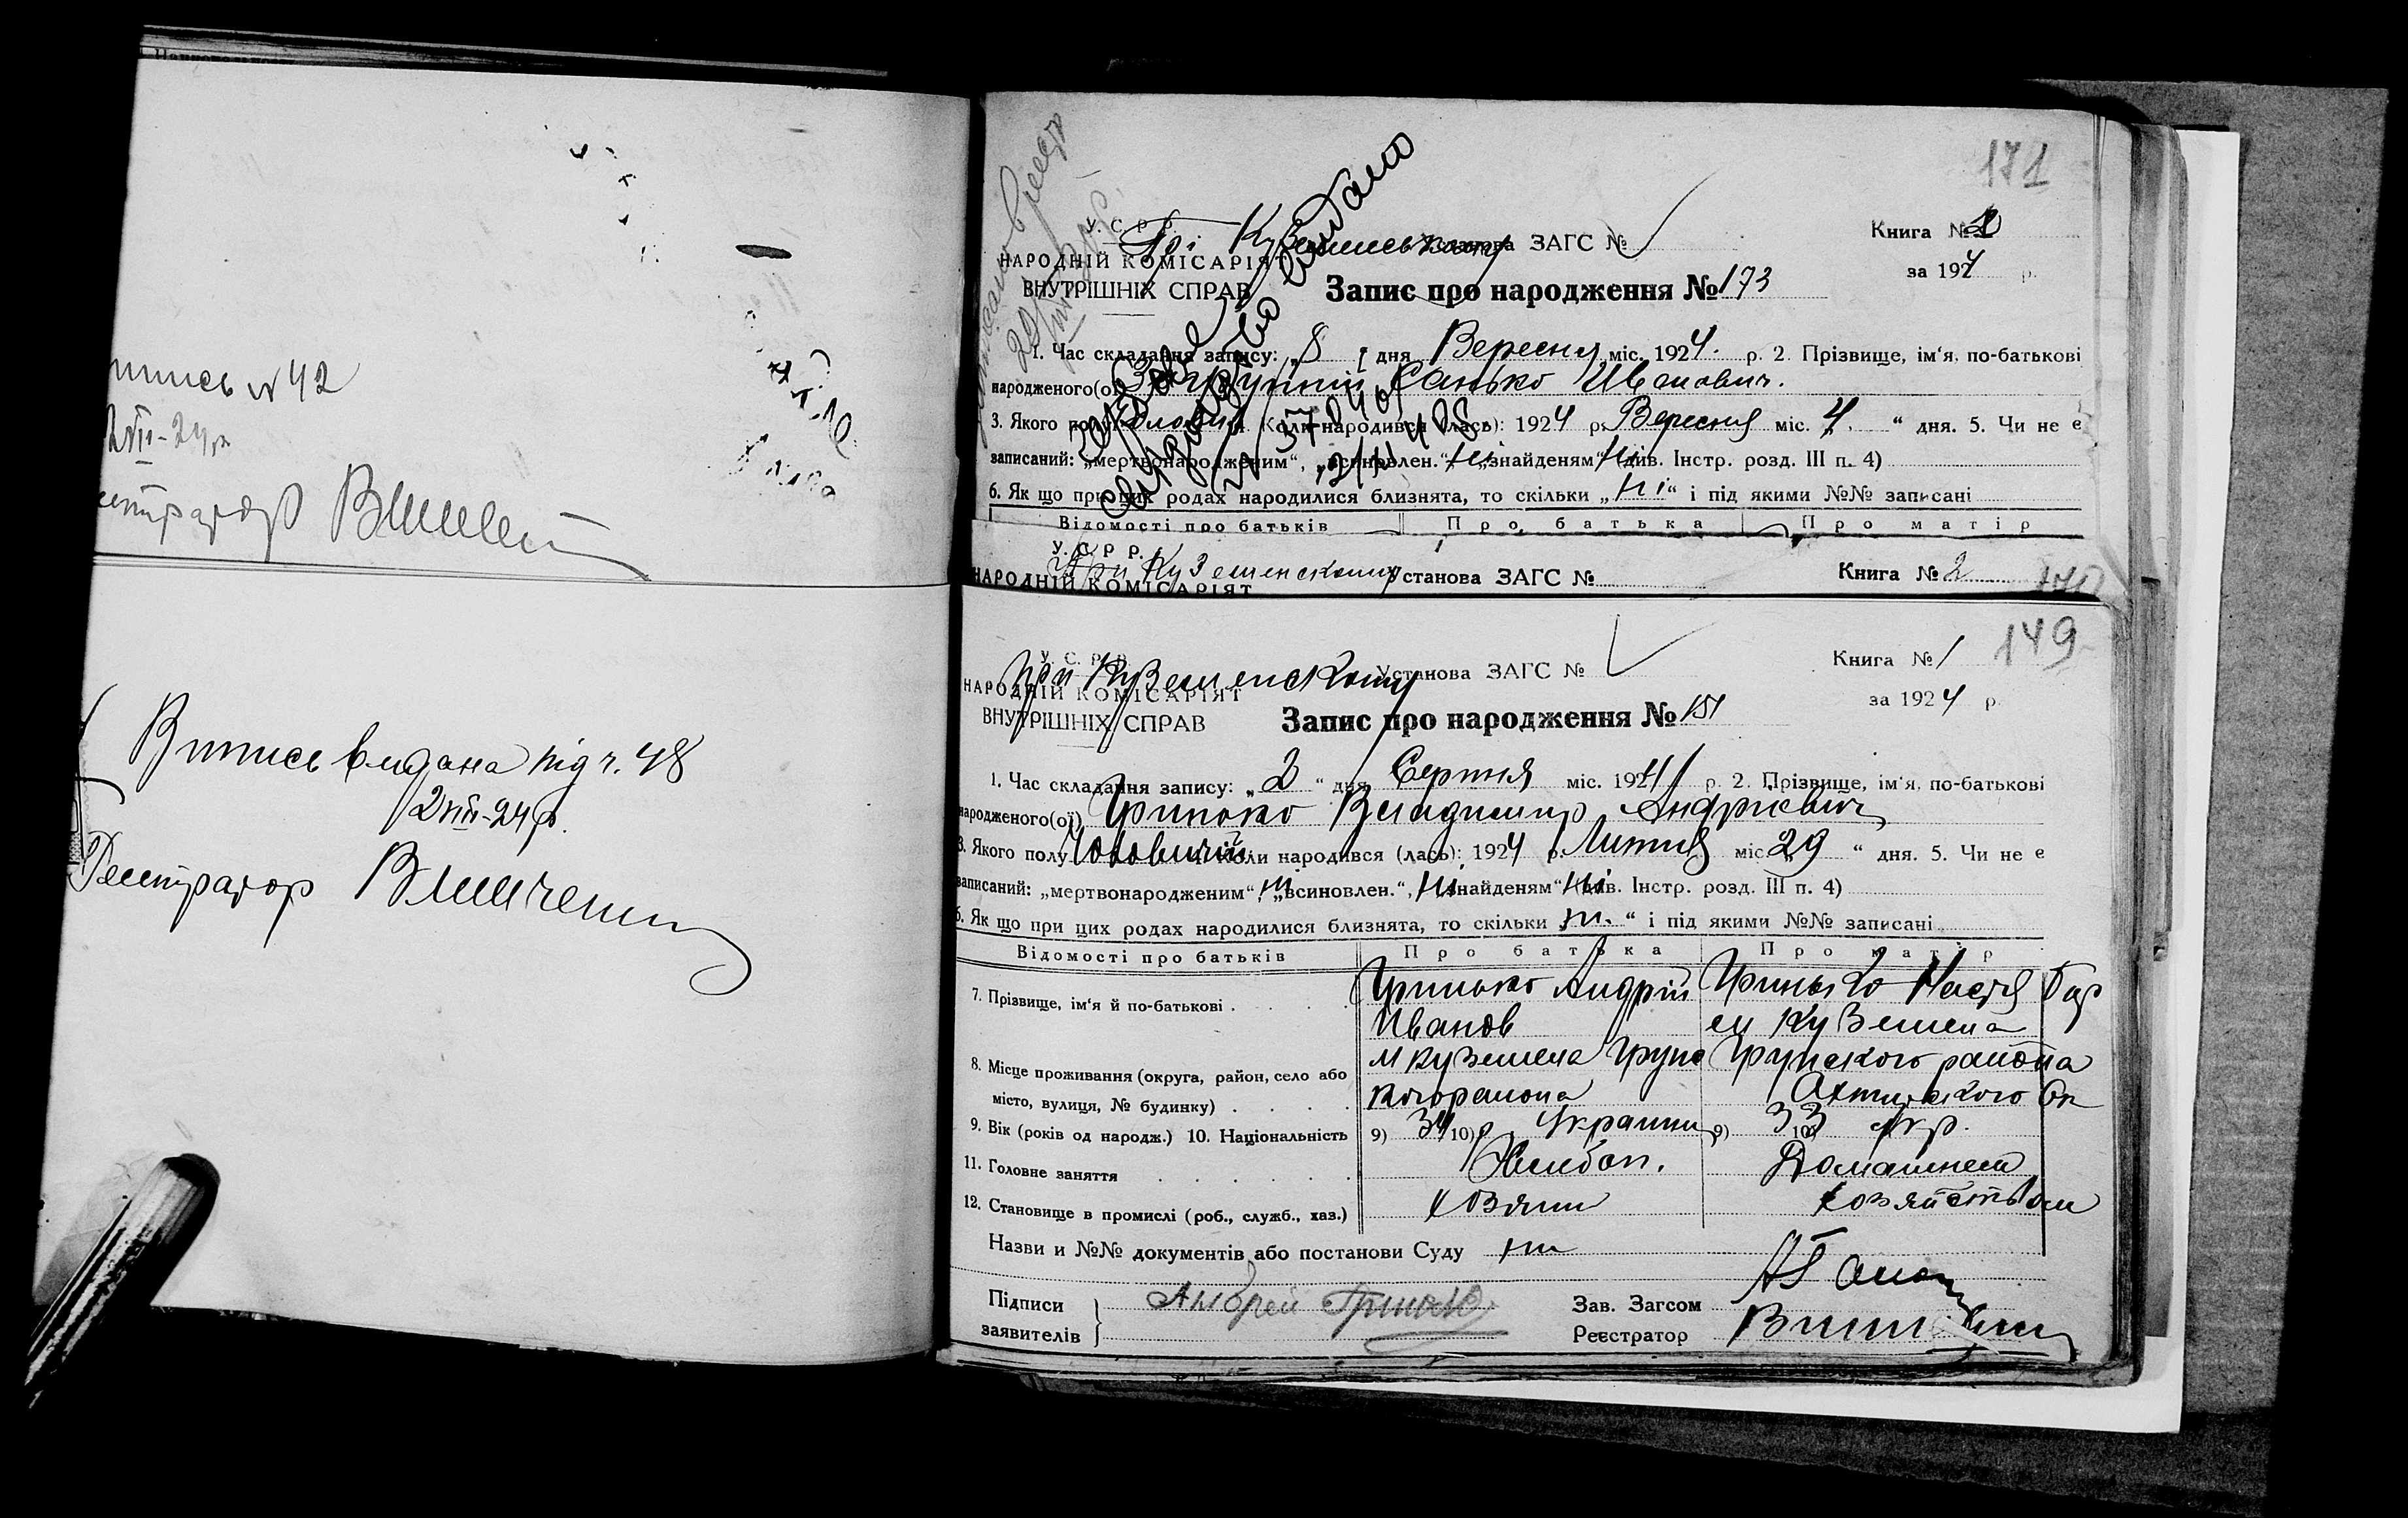 № 42
Випись видана під ч. 48
2 VIII-24 р.
Реєстратор
171
У. С. Р. Р.
НАРОДНІЙ КОМІСАРІЯТ
ВНУТРІШНІХ СПРАВ
При Куземинському Установа ЗАГС №
Книга № 2
за 1924 р.
Запис про народження № 173
1. Час складання запису: „8“ дня Вересня міс. 1924 р. 2. Прізвище, ім'я, по-батькові
народженого(ої) Санько Иванович.
3. Якого полу Коли народився (лась): 1924 р. Вересня міс. „4“ дня. 5. Чи не є
записаний: „мертвонародженим“, „всиновлен.“, ні „знайденям“ ні (див. Інстр. розд. III п. 4)
6. Як що при цих родах народилися близнята, то скільки „ні“ і під якими №№ записані
Відомості про батьків Про батька Про матір
свидоцтво видано
У. С. Р. Р.
При Куземенскому Установа ЗАГС №
Книга № 2
170
НАРОДНІЙ КОМІСАРІЯТ
149
У. С. Р. Р.
при Куземенскому Установа ЗАГС №
Книга № 1
НАРОДНІЙ КОМІСАРІЯТ
ВНУТРІШНІХ СПРАВ
за 1924 р.
Запис про народження № 151
1. Час складання запису: „2“ дня Серпня міс. 1924 р. 2. Прізвище, ім'я, по-батькові
народженого(ої) Гринько Владимир Андрієвич
3. Якого полу Чоловичий Коли народився (лась): 1924 р. Липня міс. 29 “ дня. 5. Чи не є
записаний: „мертвонародженим“, ні „всиновлен.“, ні „знайденям“ ні (див. Інстр. розд. III п. 4)
6. Як що при цих родах народилися близнята, то скільки ні “ і під якими №№ записані
Відомості про батьків Про батька Про матір
7. Прізвище, ім'я й по-батькові Гринько Андрій Иванов Гринько Настя
8. Місце проживання (округа, район, село або місто, вулиця, № будинку) м Куземена Грунского району Куземена Грунского района Ахтирского Ок
9. Вік (років од народж.) 10. Національність 9) 34 10) Украинец 9) 33 10) Укр.
11. Головне заняття Хлебоп. Домашнем
12. Становище в промислі (роб., служб., хаз.) хозяин хозяйством
Назви и №№ документів або постанови Суду ни
Підписи заявителів Андрей Гринько
Зав. Загсом
Реєстратор